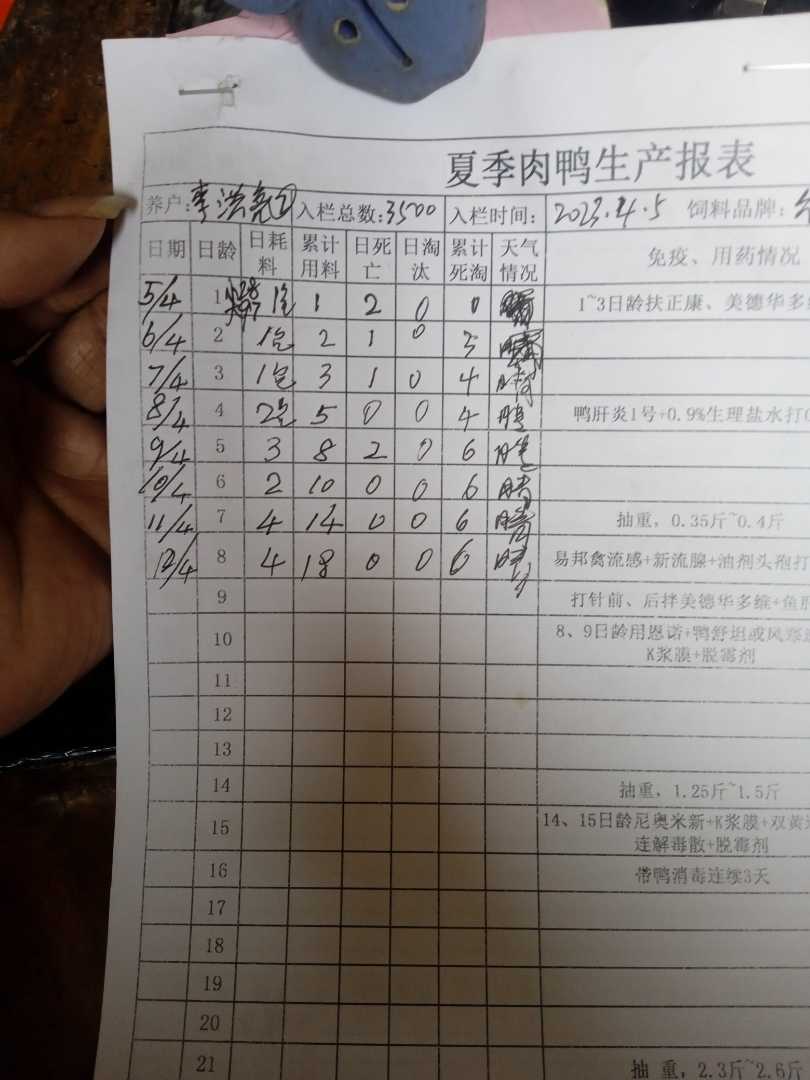 夏季肉鸭生产报表
养户:李洪亮 入栏总数:3500 入栏时间: 2023.4.5 饲料品牌:
日期 日龄 日耗料 累计用料 日死亡 日淘汰 累计死淘 天气情况 免疫、用药情况
5/4 1 1包 1 2 0 0 1~3日龄扶正康、美德华多维
6/4 2 1包 2 1 0 3
7/4 3 1包 3 1 0 4
8/4 4 2包 5 0 0 4 鸭肝炎1号+0.9%生理盐水打
9/4 5 3 8 2 0 6
10/4 6 2 10 0 0 6 晴
11/4 7 4 14 0 0 6 抽重，0.35斤~0.4斤
12/4 8 4 18 0 0 6 易邦禽流感+新流腺+油剂头孢打
9 打针前、后拌美德华多维+鱼肝
10 8、9日龄用恩诺+鸭舒坦或风寒
K浆膜+脱霉剂
11
12
13
14 抽重，1.25斤~1.5斤
15 14、15日龄尼奥米新+K浆膜+双黄
连解毒散+脱霉剂
16 带鸭消毒连续3天
17
18
19
20
21 抽 重，2.3斤~2.6斤